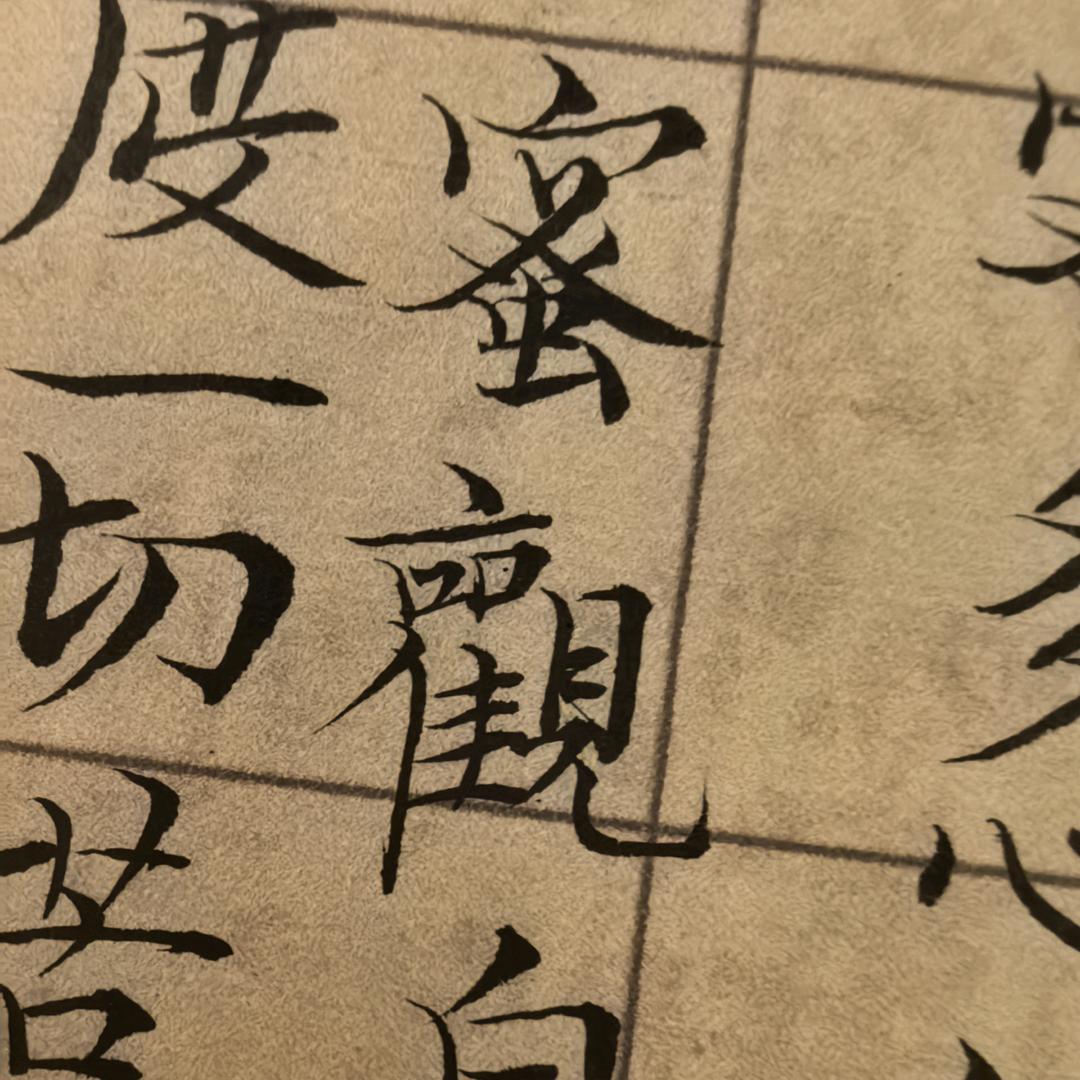 多心
蜜觀自
度一切苦